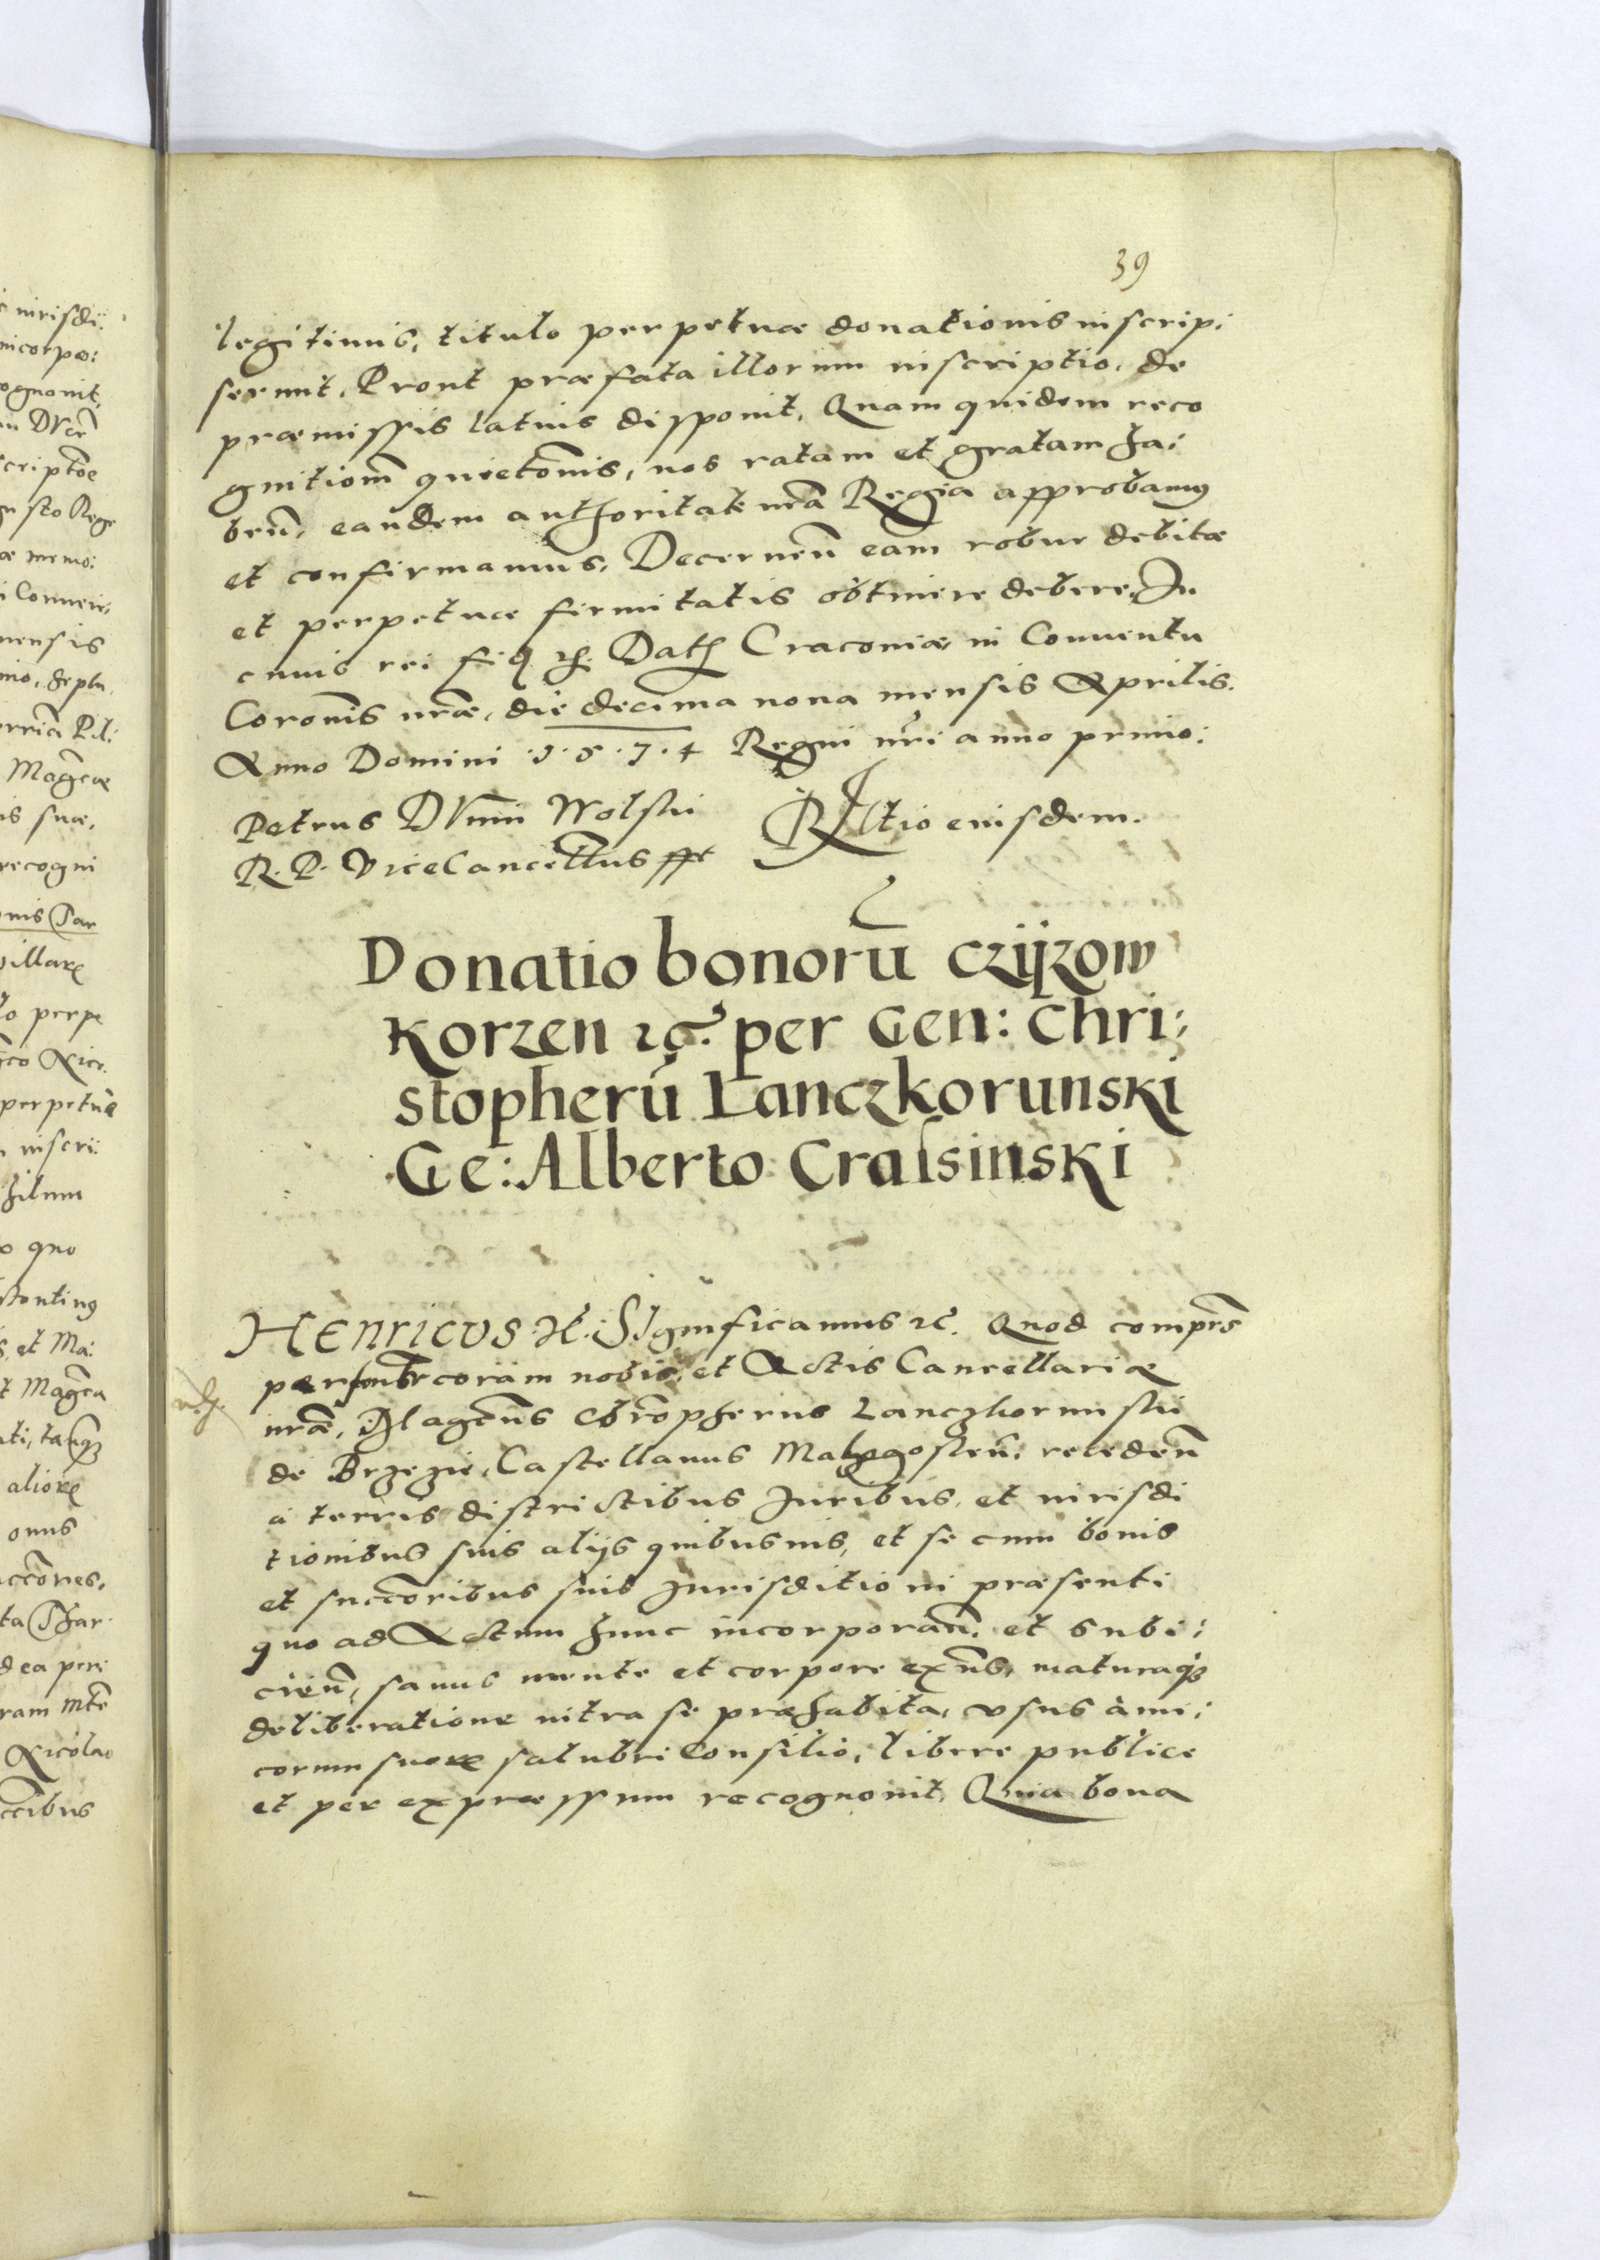 39
legitimis, titulo perpetuæ donationis inscrip:
serunt, Prout præfata illorum inscriptio, de
præmissis latius disponit, Quam quidem reco
gnitionē quietōnis, nos ratam et gratam ha:
beñ, eandem authoritate nr̄a Regia approbamus
et confirmamus, Decerneñ eam robur debitæ
et perpetuæ firmitatis obtinere debere, In
cuius rei fidē &c. Dat̄ Cracoviæ in Conventu
Coronīs nr̄æ, die decima nona mensis Aprilis.
Anno Domini .1.5.7.4 Regni nr̄i anno primo:
Petrus Dunin Wolski
R. P. ViceCancell̄us sst
Rltio eiusdem.
Donatio bonorū Czijzow
Korzen &c. per Gen: Chri:
stopherū Lanczkorunski
Ge: Alberto Crassinski
HENRICVS &c: SIgnificamus &c. Quod comprñs
personlr coram nobis, et Actis Cancellariæ
nr̄æ, Magcūs Chrōpherus Lanczkorunski
de Brzezie, Castellanus Malogosteñ, recedeñ
a terris districtibus Iuribus, et iurisdi
tionibus suis aliis quibusuis, et se cum bonis
et succōribus suis Iurisditioni præsenti
quo ad Actum hunc incorporañ, et subi:
cieñ, sanus mente et corpore exñs, maturaq3
deliberatione intra se præhabita, vsus ami:
corum suorꝝ salubri Consilio, libere publice
et per expressum recognouit, Quia bona